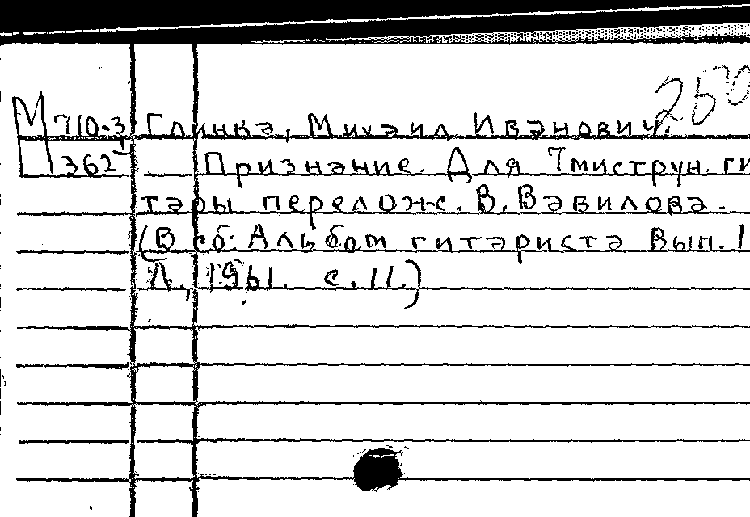 250
М 710.3 Глинка, Михаил Иванович.
362 Признание. Для 7миструн. ги
тары перелож. В. Вавилова.
(В сб: Альбом гитариста Вып. 1
Л., 1961. с. 11.)